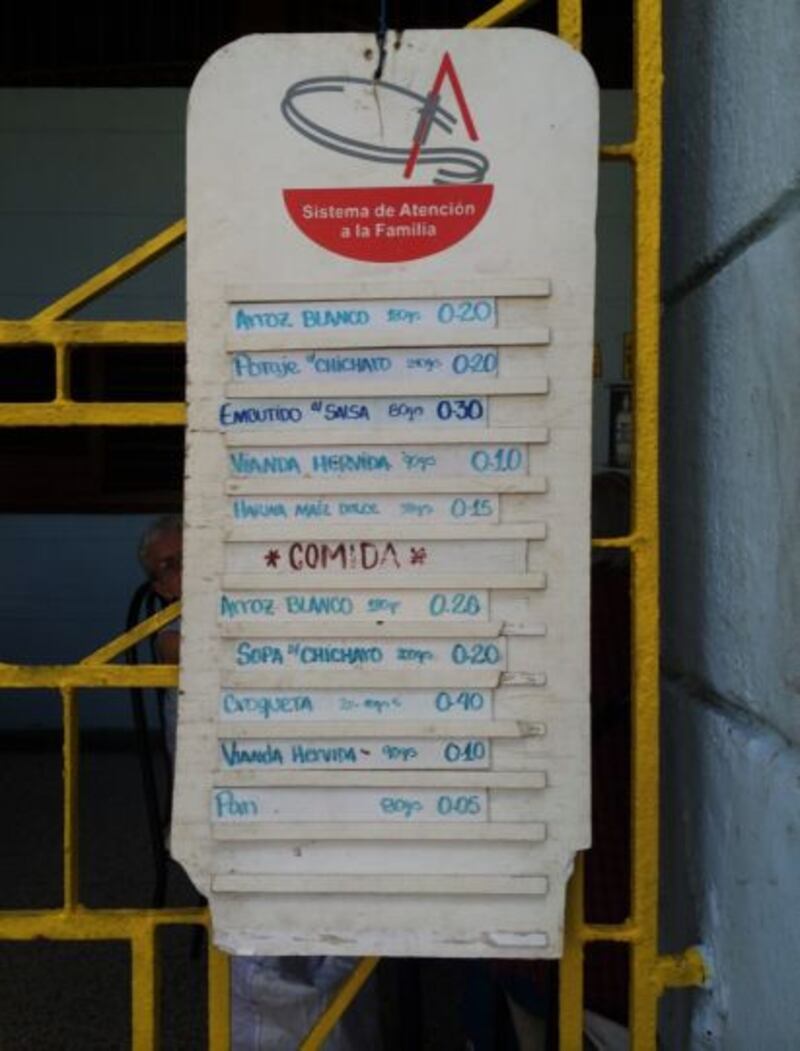 Sistema de Atención
a la Familia
Arroz BLANCO 180gs 0.20
Potaje d/CHICHARO 0.20
EMBUTIDO d/SALSA 80gs 0.30
VIANDA HERVIDA 90gs 0.10
HARINA MAÍZ DULCE 0.15
*COMIDA*
Arroz BLANCO 0.20
SOPA d/CHICHARO 0.20
CroquETA 0.40
VIANDA HERVIDA - 90gs 0.10
Pan 80gs 0.05